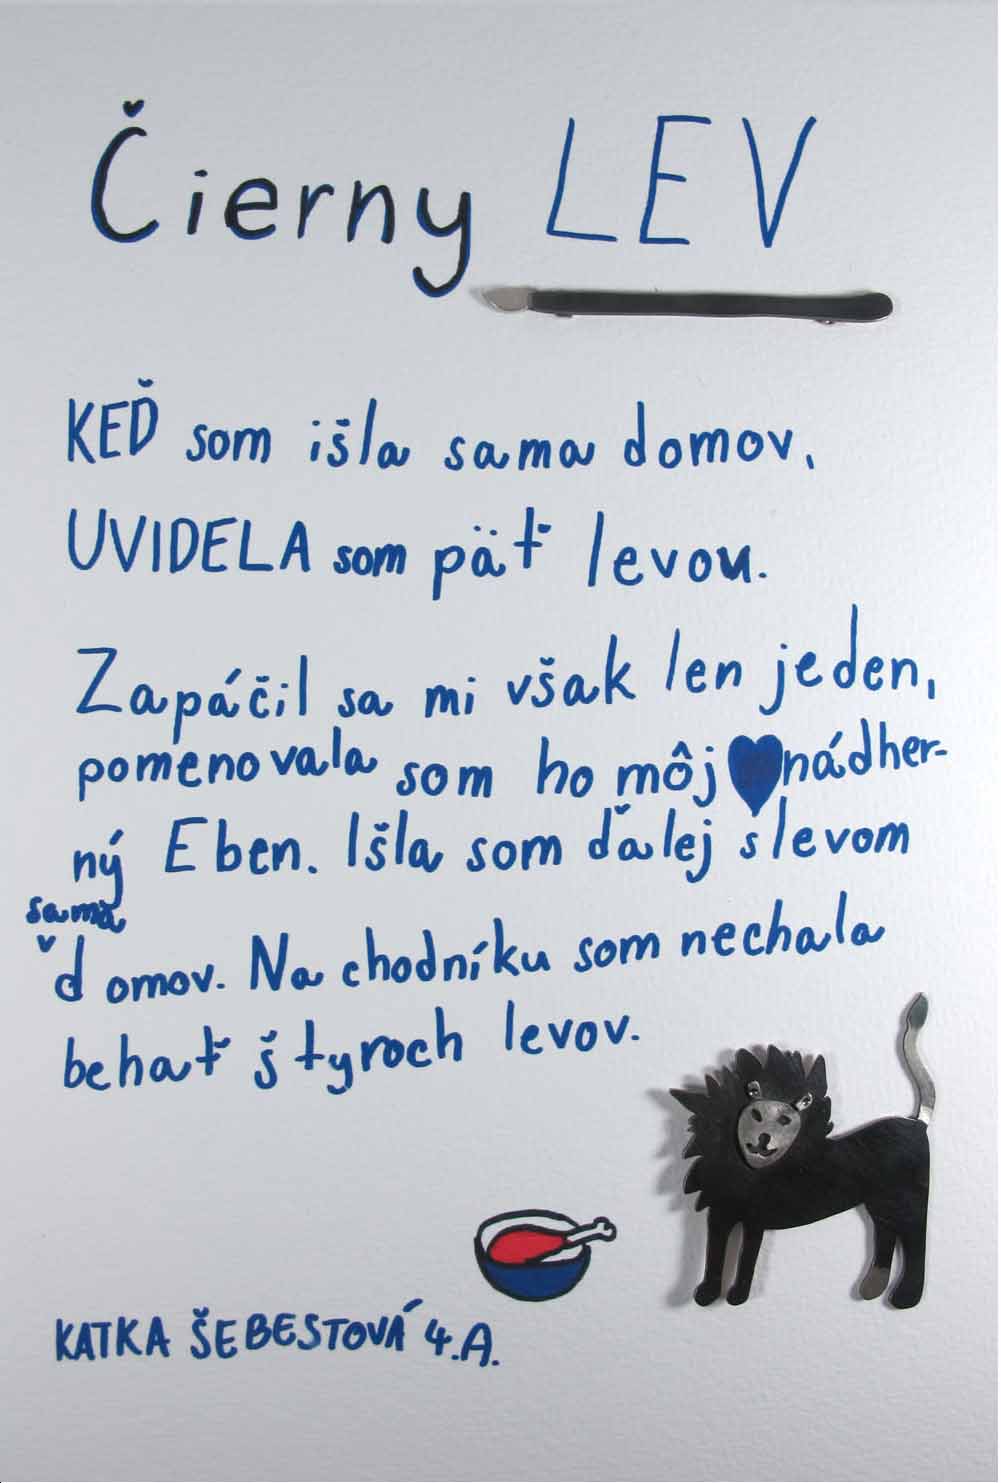 Čierny LEV
KEĎ som išla sama domov,
UVIDELA som päť levou.
Zapáčil sa mi však len jeden,
pomenovala som ho môj nádher-
ný Eben. Išla som ďalej s levom
sama
domov. Na chodníku som nechala
behať štyroch levov.
KATKA ŠEBESTOVÁ 4.A.